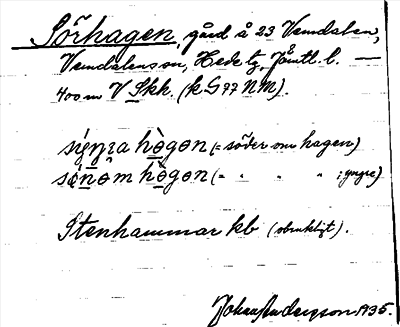 Sörhagen, gård å 23 Vemdalen,
Vemdalens sn, Hede tg, Jämtl. l. —
400 m V Skh. (k G 77 NM).
hògən (= söder om hagen)
hògən (= " " " ; yngre)
Stenhammar kb (obrukligt).
Johan Anderzson 1935.